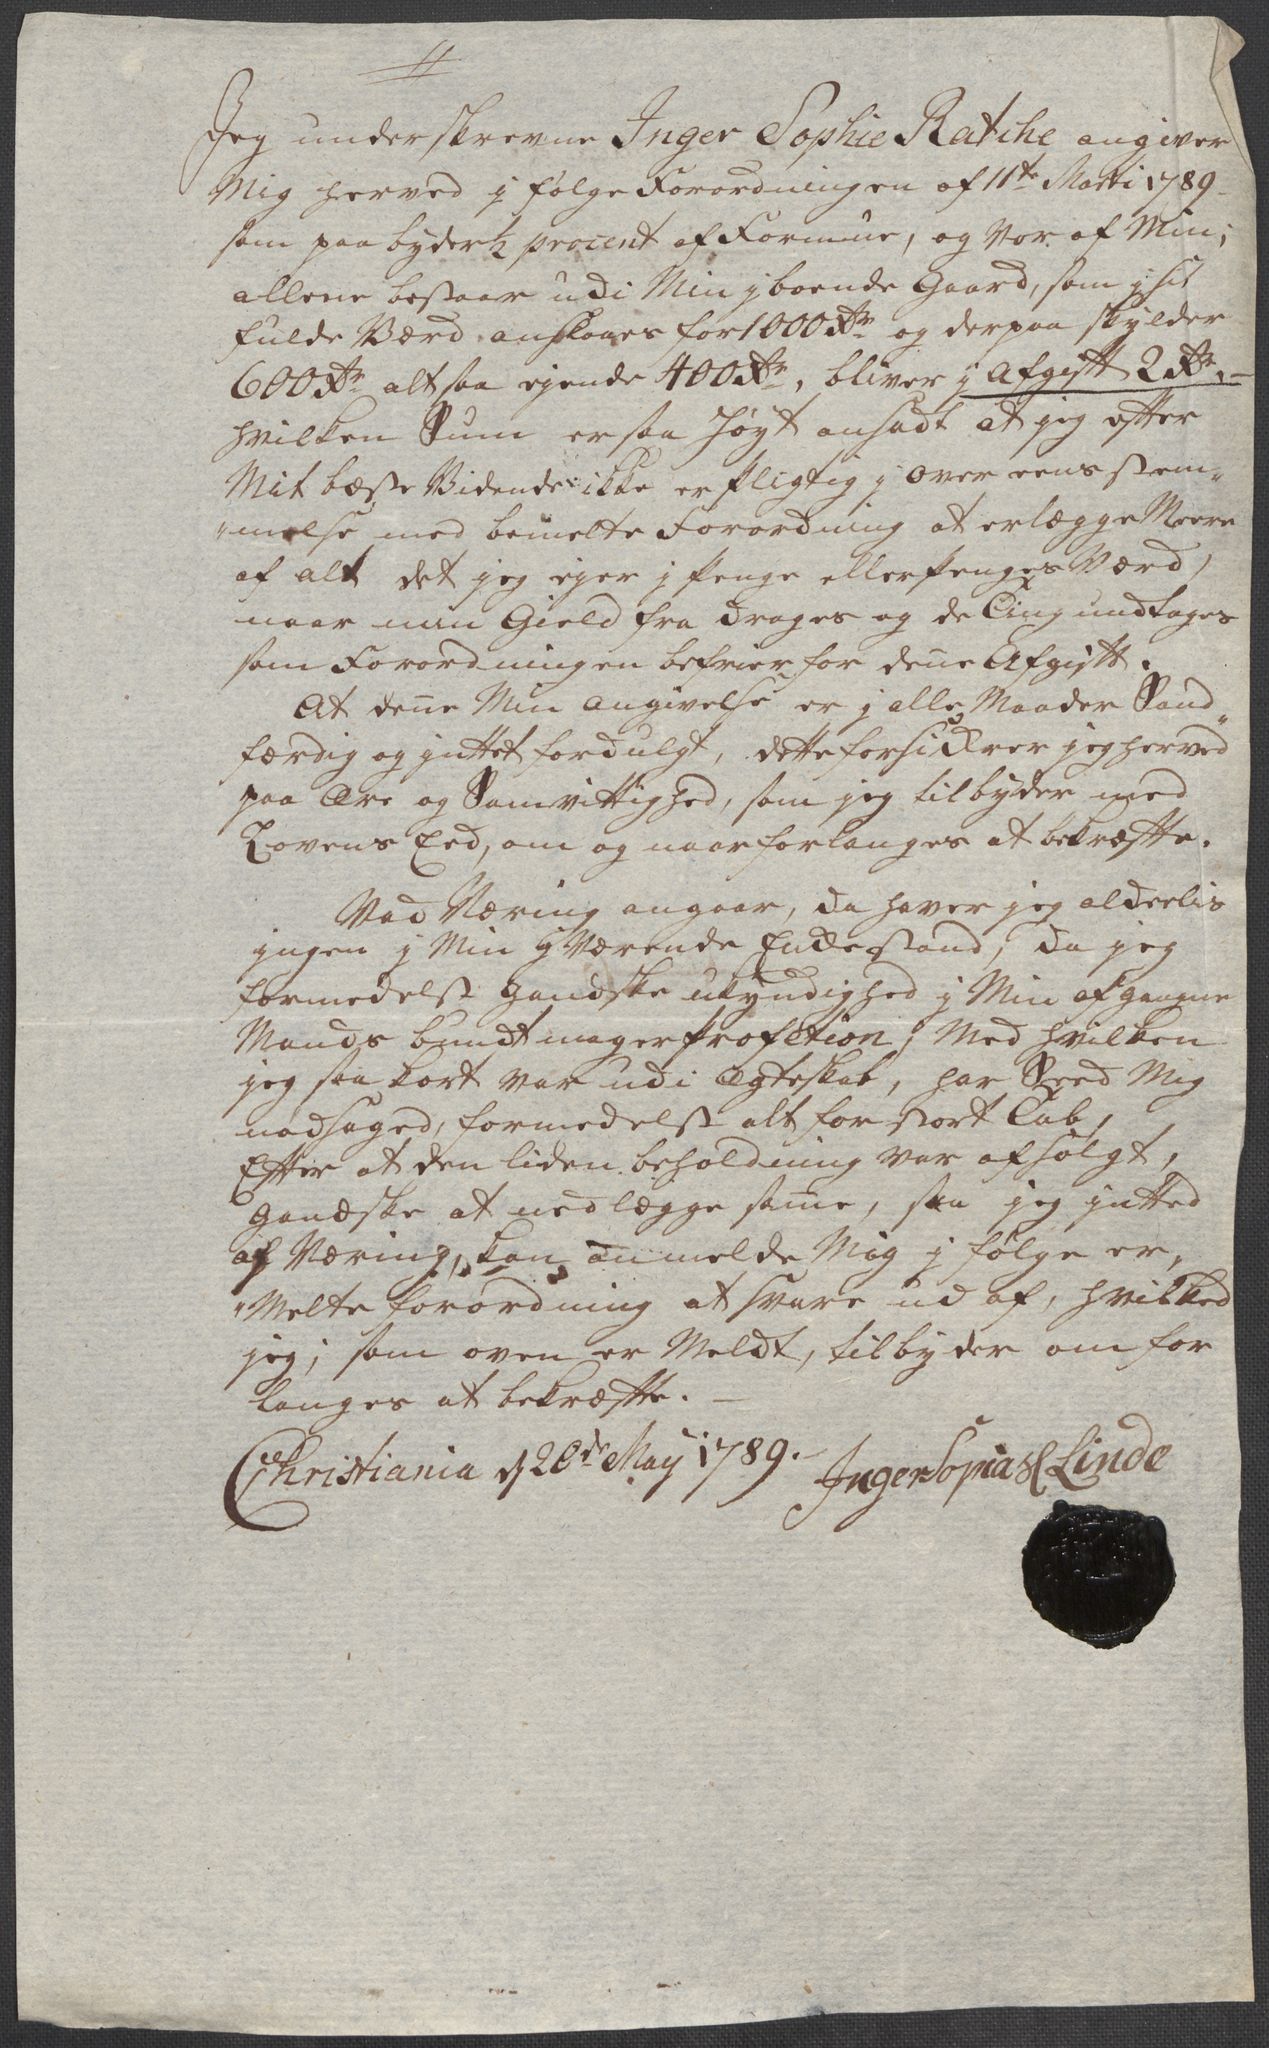 Jeg underskrevne Inger Sophie Ratche angiver
Mig herved j følge Forordningen af 11te Marti 1789
som paabyder ½ procent af Formue, og Vor af Min;
allene bestaar udi Min jboende Gaard, som j sit
fulde Værd anslaaes for 1000 Rdr og derpaa skylder
600 Rdr altsaa ejende 400 Rdr, bliver j Afgift 2 Rdr,
hvilken Sum er saa Høyt ansadt at jeg efter
Mit bæste Vidende ikke er pligtig j over eens stem„
„melse med bemelte Forordning at erlægge Meere
af alt det jeg ejer j Penge eller Penges Værd,
naar min Gield fra drages og de Ting undtages
som Forordningen befrier for deñe Afgift.
At deñe Min angivelse er j alle Maader Sand„
færdig og jntet fordulgt, dette forsickrer jeg herved
paa Ære og Samvittighed, som jeg tilbyder med
Lovens Eed, om og naar forlanges at bekræfte.
Vad Næring angaar, da haver jeg alderlis
jngen j Min Værende Enckestand, da jeg
formedelst Gandske ukyndighed j Min afgangne
Mands bundtmager Profetion, Med hvilken
jeg saa kort var udi Ægteskab, har Seed Mig
nødsaged, formedelst alt for stort Tab,
Efter at den liden beholdning var afsolgt,
Gandske at nedlægge same, saa jeg jntted
af Næring, kan anmelde Mig j følge er„
„Melte forordning at svare ud af, hvilked
jeg, som oven er Meldt, tilbyder om for
langes at bekræfte.
Christiania d 28de May 1789.
Inger Sopia Sl Linde